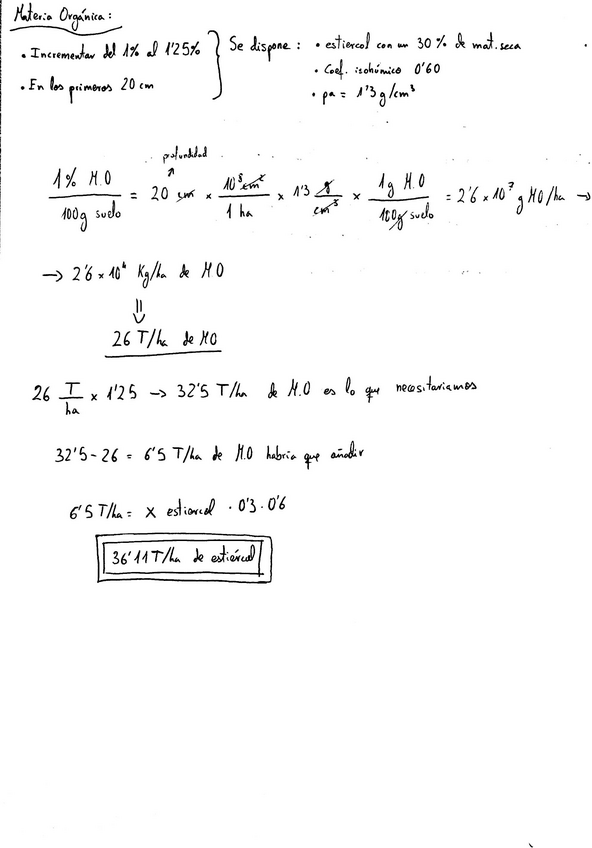 Materia Orgánica:
• Incrementar del 1% al 1'25% } Se dispone: • estiercol con un 30% de mat. seca
• Coef. isohúmico 0'60
• En los primeros 20 cm
• pa = 1'3 g/cm³
profundidad
1% M.O / 100g suelo = 20 cm × 10⁸ cm² / 1 ha × 1'3 g / cm³ × 1g M.O / 100g suelo = 2'6 × 10⁷ g MO/ha →
→ 2'6 × 10⁴ Kg/ha de MO
26 T/ha de MO
26 T/ha × 1'25 → 32'5 T/ha de M.O es lo que necesitariamos
32'5 - 26 = 6'5 T/ha de M.O habria que añadir
6'5 T/ha = x estiercol · 0'3 · 0'6
36'11 T/ha de estiércol